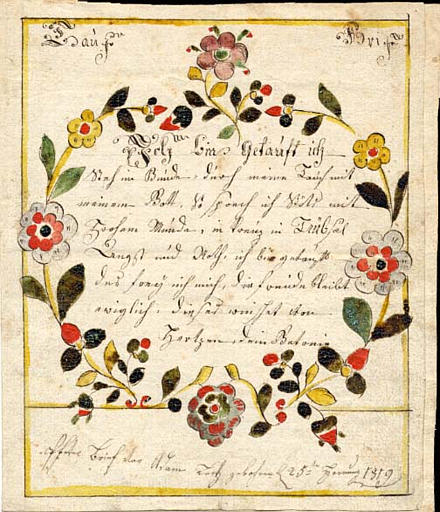 Tauf Brief
Ich bin Getauft ich
Steh im Bunde, durch meine Tauf mit
meinem Gott, So sprech ich stets mit
frohem Munde, in Creuz in Trübsal
Angst und Noth, ich bin getauft
des freu ich mich, die freude bleibt
ewiglich, dieses
Hertzen
Brief vor Adam gebohren 25 1819